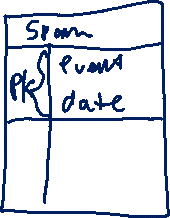 Spam
PK event
date